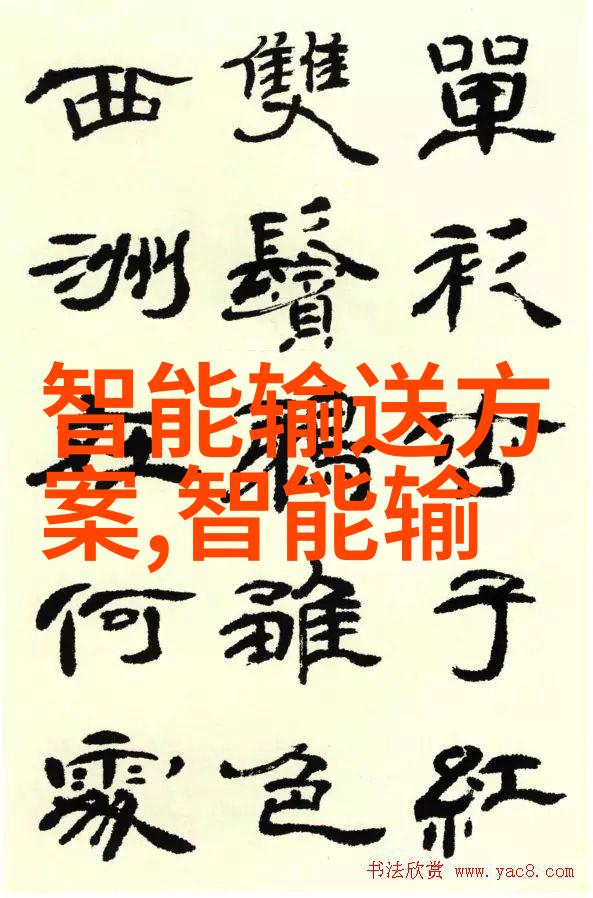 單衫杏子紅
雙鬢鴉雛色
西洲在何處
智能输送方
案,智能输
书法欣赏 www.yac8.com